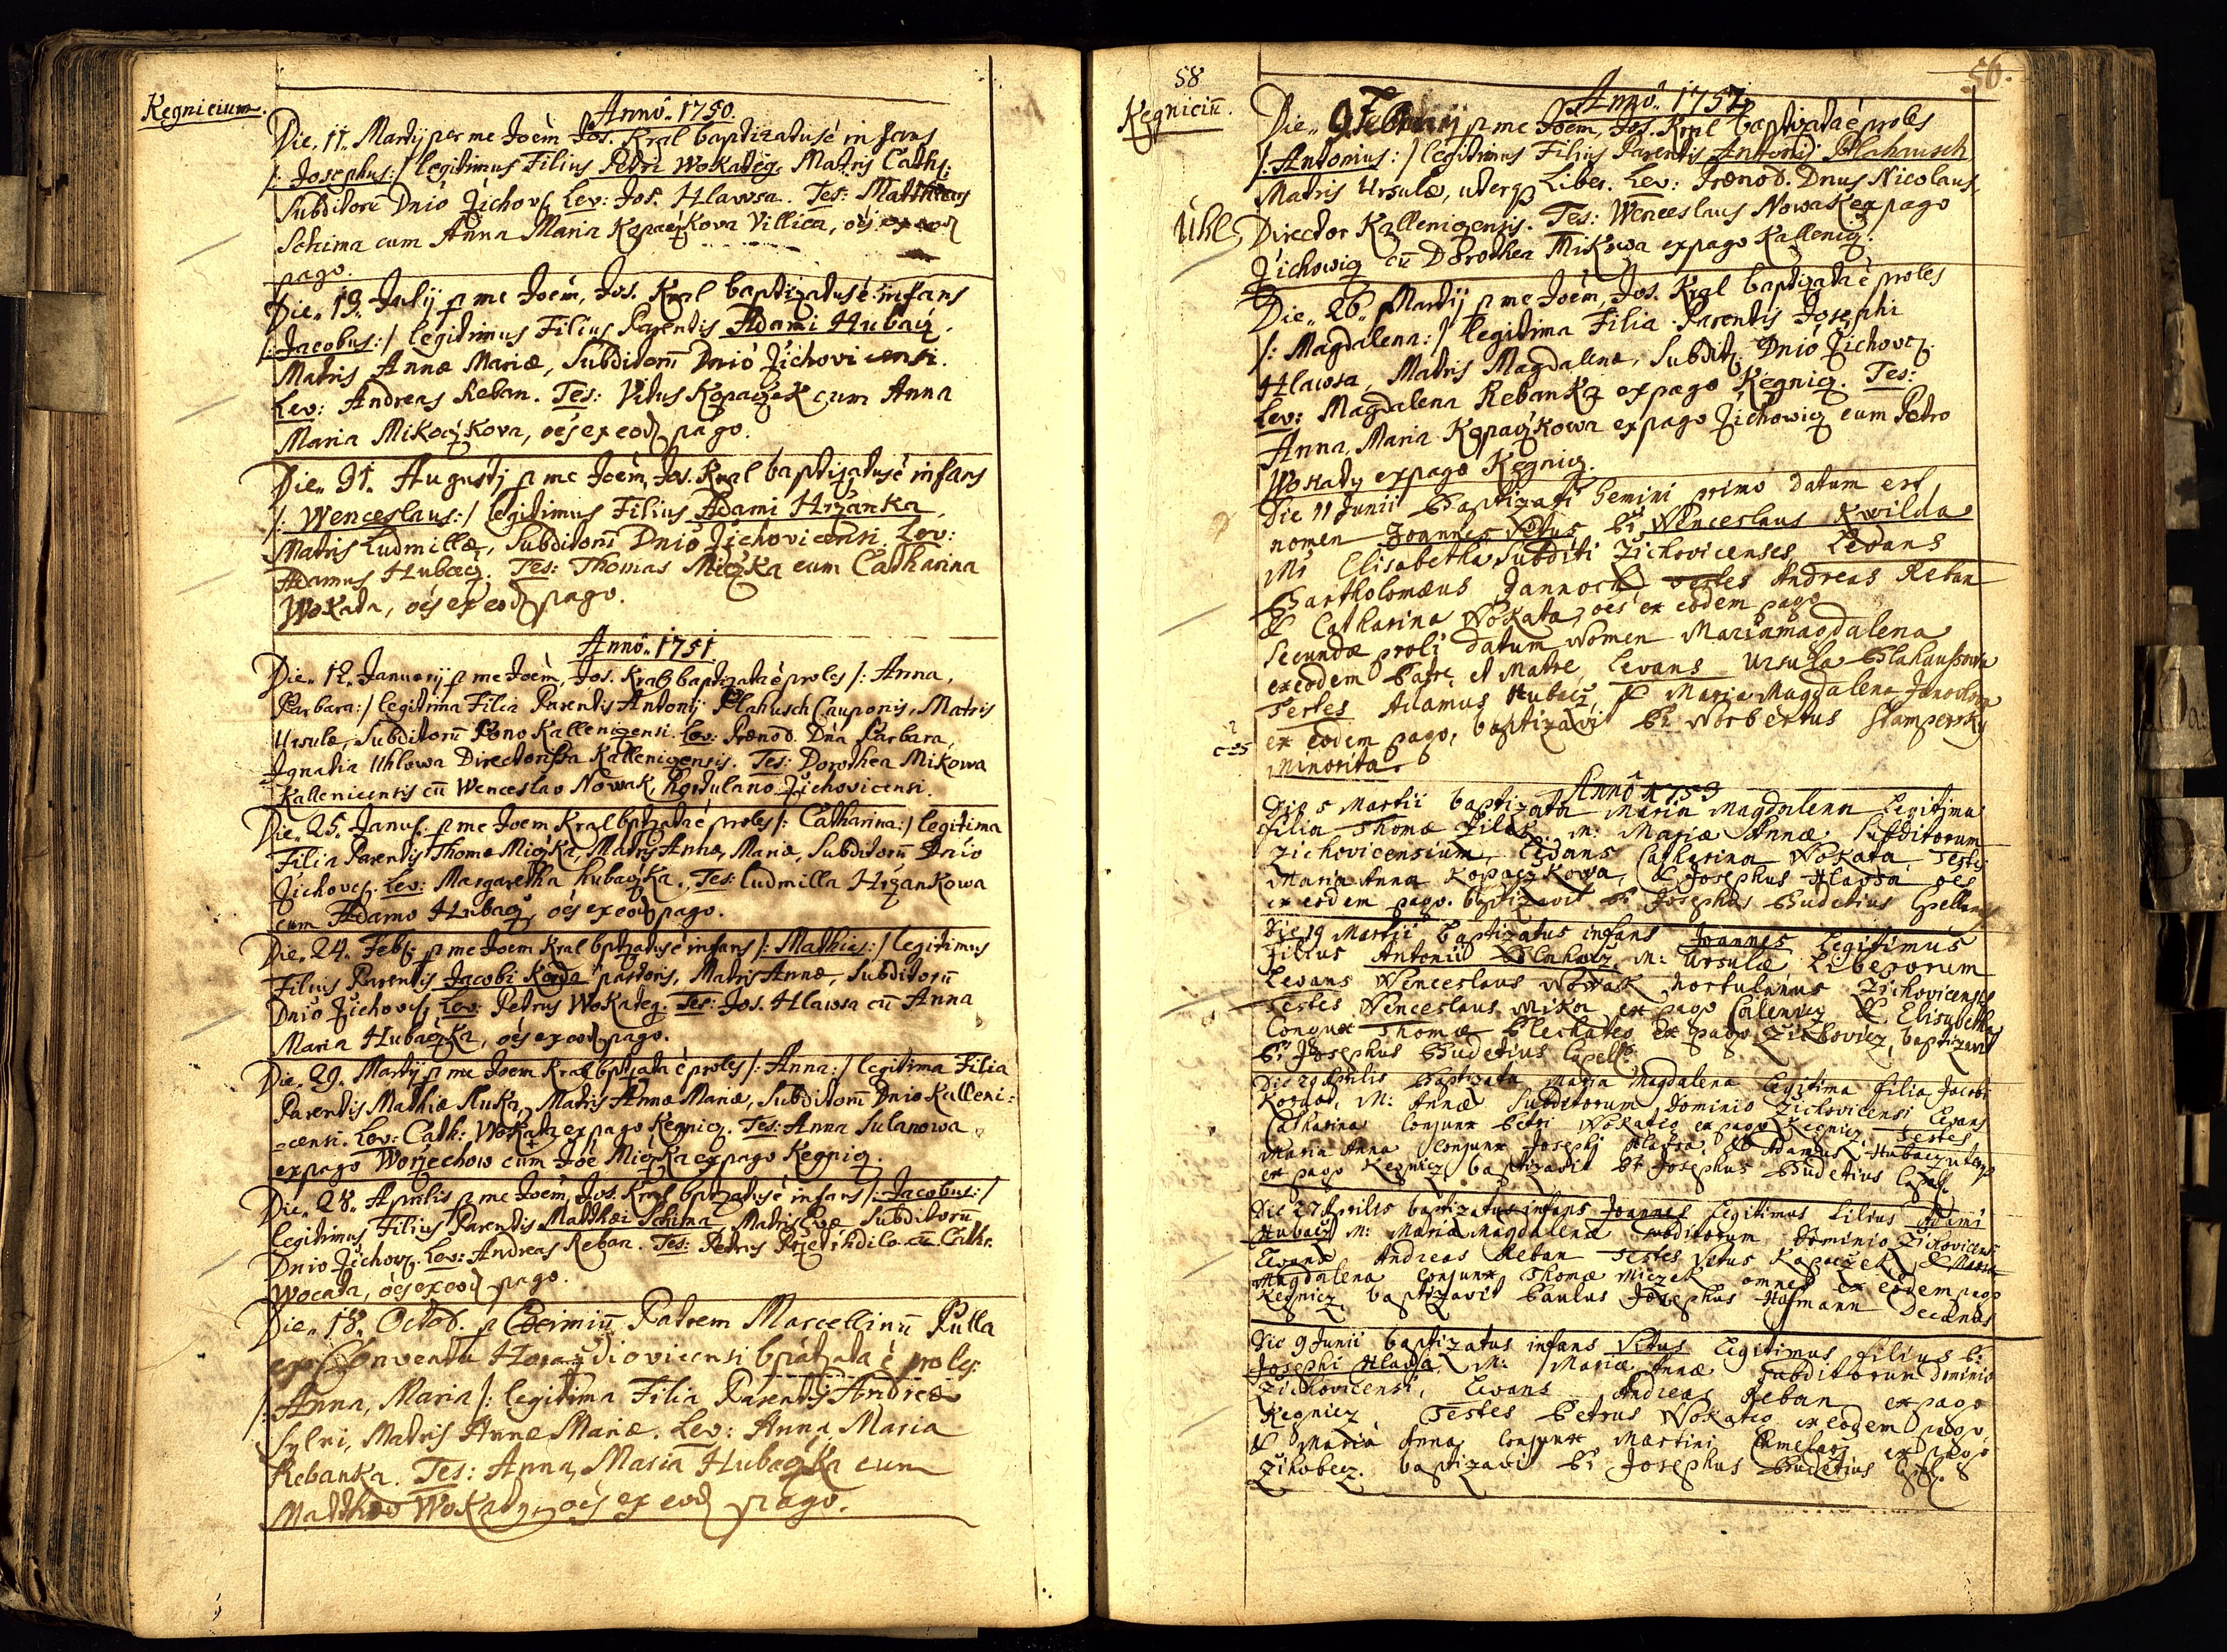 Kegnicium.
Anno. 1750.
Die. 11. Martij per me Joem Jos. Kral baptizatus e infans
/: Josephus:/ legitimus Filius Petri Wokateg. Matris Cath:
Subditoru Dnio Žichov: Lev: Jos. Hlawsa. Tes: Matthaeus
Schima cum Anna Maria Kopaczkova Villica, oes ex eod
pago.
Die. 13. Julij p me Joem, Jos. Kral baptizatus e infans
/: Jacobus:/ legitimus Filius Parentis Adami Hubacz.
Matris Annæ Mariæ, Subditoru Dnio Žichovicensi.
Lev: Andreas Reban. Tes: Vitus Kopaczek cum Anna
Maria Mikoczkova, oes ex eod pago.
Die. 31. Augustj p me Joem, Jos. Kral baptizatus e infans
/: Wenceslaus:/ legitimus Filius Adami Hržanka,
Matris Ludmillæ, Subditoru Dnio Žichovicensi. Lev:
Adamus Hubacz. Tes: Thomas Miczka cum Catharina
Wokata, oes ex eod pago.
Anno. 1751.
Die. 12. Januarij p me Joem, Jos. Kral baptizata e proles /: Anna,
Barbara:/ legitima Filia Parentis Antonij Blahusch Cauponis, Matris
Ursulæ, Subditoru Dono Kallenicensi. Lev: Prænob. Dna Barbara,
Ignatia Uhlowa Directorissa Kallenicensis. Tes: Dorothea Mikowa
Kallenicensis cu Wenceslao Nowak, hortulano Žichovicensi.
Die. 25. Janu: p me Joem Kral bptzata e proles /: Catharina:/ legitima
Filia Parentis Thomæ Miczka, Matris Annæ, Mariæ, Subditoru Dnio
Žichovc. Lev: Margaretha Hubaczka. Tes: Ludmilla Hržankowa
cum Adamo Hubacz, oes ex eod pago.
Die. 24. Feb: p me Joem Kral bptzatus e infans /: Mathias:/ legitimus
Filius Parentis Jacobi Korda pastoris, Matris Annæ, Subditoru
Dnio Žichov: Lev: Petrus Wokateg. Tes: Jos. Hlawsa cu Anna
Maria Hubaczka, oes ex eod pago.
Die. 29. Martij p me Joem Kral bptzata e proles /: Anna:/ legitima Filia
Parentis Mathiæ Sluka, Matris Annæ Mariæ, Subditoru Dnio Kalleni=
=censi. Lev: Cath: Wokata ex pago Kegnicz. Tes: Anna Sulanowa
ex pago Worzechow cum Joe Miczka ex pago Kegnicz.
Die. 28. Aprilis p me Joem, Jos. Kral bptzatus e infans /: Jacobus:/
legitimus Filius Parentis Matthæi Schima, Matris Evæ Subditoru
Dnio Žichov: Lev: Andreas Reban. Tes: Petrus cu Cathr.
Wocata, oes ex eod pago.
Die. 18. Octob. p Patrem Marcellinu Pulla
ex Conventu Horazdiovicensi bptzata e proles
/: Anna, Maria /: legitima Filia Parentis Andreæ
Sylvi, Matris Annæ Mariæ. Lev: Anna, Maria
Rebanka. Tes: Anna, Maria Hubaczka cum
Mattheo Wokaty, oes ex eod pago.
58
56.
Kegniciu.
Anno. 1752.
Die. 9. Februarij p me Joem, Jos. Kral baptizata e proles
/: Antonius:/ legitimus Filius Parentis Antonij Blahausch
Matris Ursulæ, uterq Liber. Lev: Prænob. Dnus Nicolaus
Uhl, Director Kallenicensis. Tes: Wenceslaus Nowak ex pago
Žichowicz cu Dorothea Mikowa ex pago Kallenicz.
Die. 26. Martij p me Joem, Jos. Kral baptizata e proles
/: Magdalena:/ legitima Filia Parentis Josephi
Hlawsa, Matris Magdalenæ, Subdit: Dnio Žichovc.
Lev: Magdalena Rebanka ex pago Kegnicz. Tes:
Anna, Maria Kopaczkowa ex pago Žichowicz cum Petro
Wokaty ex pago Kegnicz.
Die 11 Junii Baptizati Gemini primo datum est
nomen Joannes Vitus Pr Wenceslaus Kwilda
Mr Elisabetha Subditi Žichovicenses Levans
Bartholomæus Jannoch testes Andreas Reban
& Catharina Wokata, oes ex eodem pago
Secundæ proli datum Nomen Maria Magdalena
ex eodem Patre, et Matre, Levans Ursula Blahaussowa
Testes Adamus Hubacz, & Maria Magdalena Janochova
ex eodem pago, baptizavit Pr Norbertus Stampersky
Minorita.
Anno 1753
Die 5 Martii baptizata Maria Magdalena Legitima
filia Thomæ Zilek M: Mariæ Annæ Subditorum
Zichovicensium, Levans Catharina Wokata Testes
Maria Anna Kopaczkowa, & Josephus Hlawsa oes
ex eodem pago. baptizavit Pr Josephus Budetius Cpellanus
Die 19 Martii baptizatus infans Joannes Legitimus
filius Antonii Blahacz M: Ursulæ Liberorum
Levans Wenceslaus Nowak hortulanus Zichovicensis
Testes Wenceslaus Mika ex pago Calenicz & Elisabetha
Conjunx Thomæ Plechateg ex pago Zichovicz, baptizavit
Pr Josephus Budetius Capell.
Die 29 Aprilis Baptizata Maria Magdalena Legitima filia Jacobi
Kordas, M: Annæ Subditorum Dominio Zichovicensi Levans
Catharina Conjunx Petri Wokateg ex pago Kegnicz, Testes
Maria Anna Conjunx Josephi Hlawsa & Adamus Hubacz uterq
ex pago Kegnicz baptizavit Pr Josephus Budetius Capell.
Die 27 Aprilis baptizatus infans Joannes Legitimus Filius Adami
Hubacz M: Mariæ Magdalenæ subditorum Dominio Zichovicensi
Levans Andreas Reban Testes Vitus Kopaczek, & Maria
Magdalena Conjunx Thomæ Miczek omnes ex eodem pago
Kegnicz, baptizavit Paulus Josephus Hofmann Decanus
Die 9 Junii baptizatus infans Vitus Legitimus filius Pr
Josephi Hlawsa M: Mariæ Annæ Subditorum Dominio
Zichovicensi, Levans Andreas Reban ex pago
Kegnicz Testes Petrus Wokateg ex eodem pago,
& Maria Anna Conjunx Martini Chmelarz ex pago
Zihobecz. baptizavit Pr Josephus Budetius Capell.